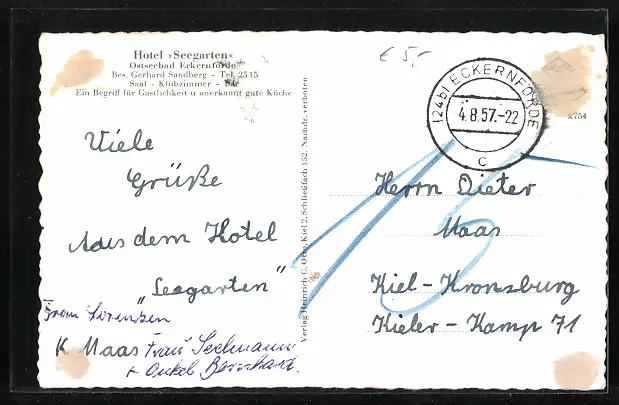 Hotel »Seegarten«
Ostseebad Eckernförde
Bes. Gerhard Sandberg - Tel. 2515
Saal - Klubzimmer -
Ein Begriff für Gastlichkeit u anerkannt gute Küche
Viele
Grüße
Aus dem Hotel
"Seegarten"
Frau Lorenzen
K Maas Frau Seelmann
+ Onkel Bernhard.
Verlag Heinrich C. Otto, Kiel 2, Schließfach 152. Nachdr. verboten
€ 5,-
(24b) ECKERNFÖRDE
4.8.57.-22
c
K754
15
Herrn Dieter
Maas
Kiel-Kronsburg
Kieler-Kamp 71